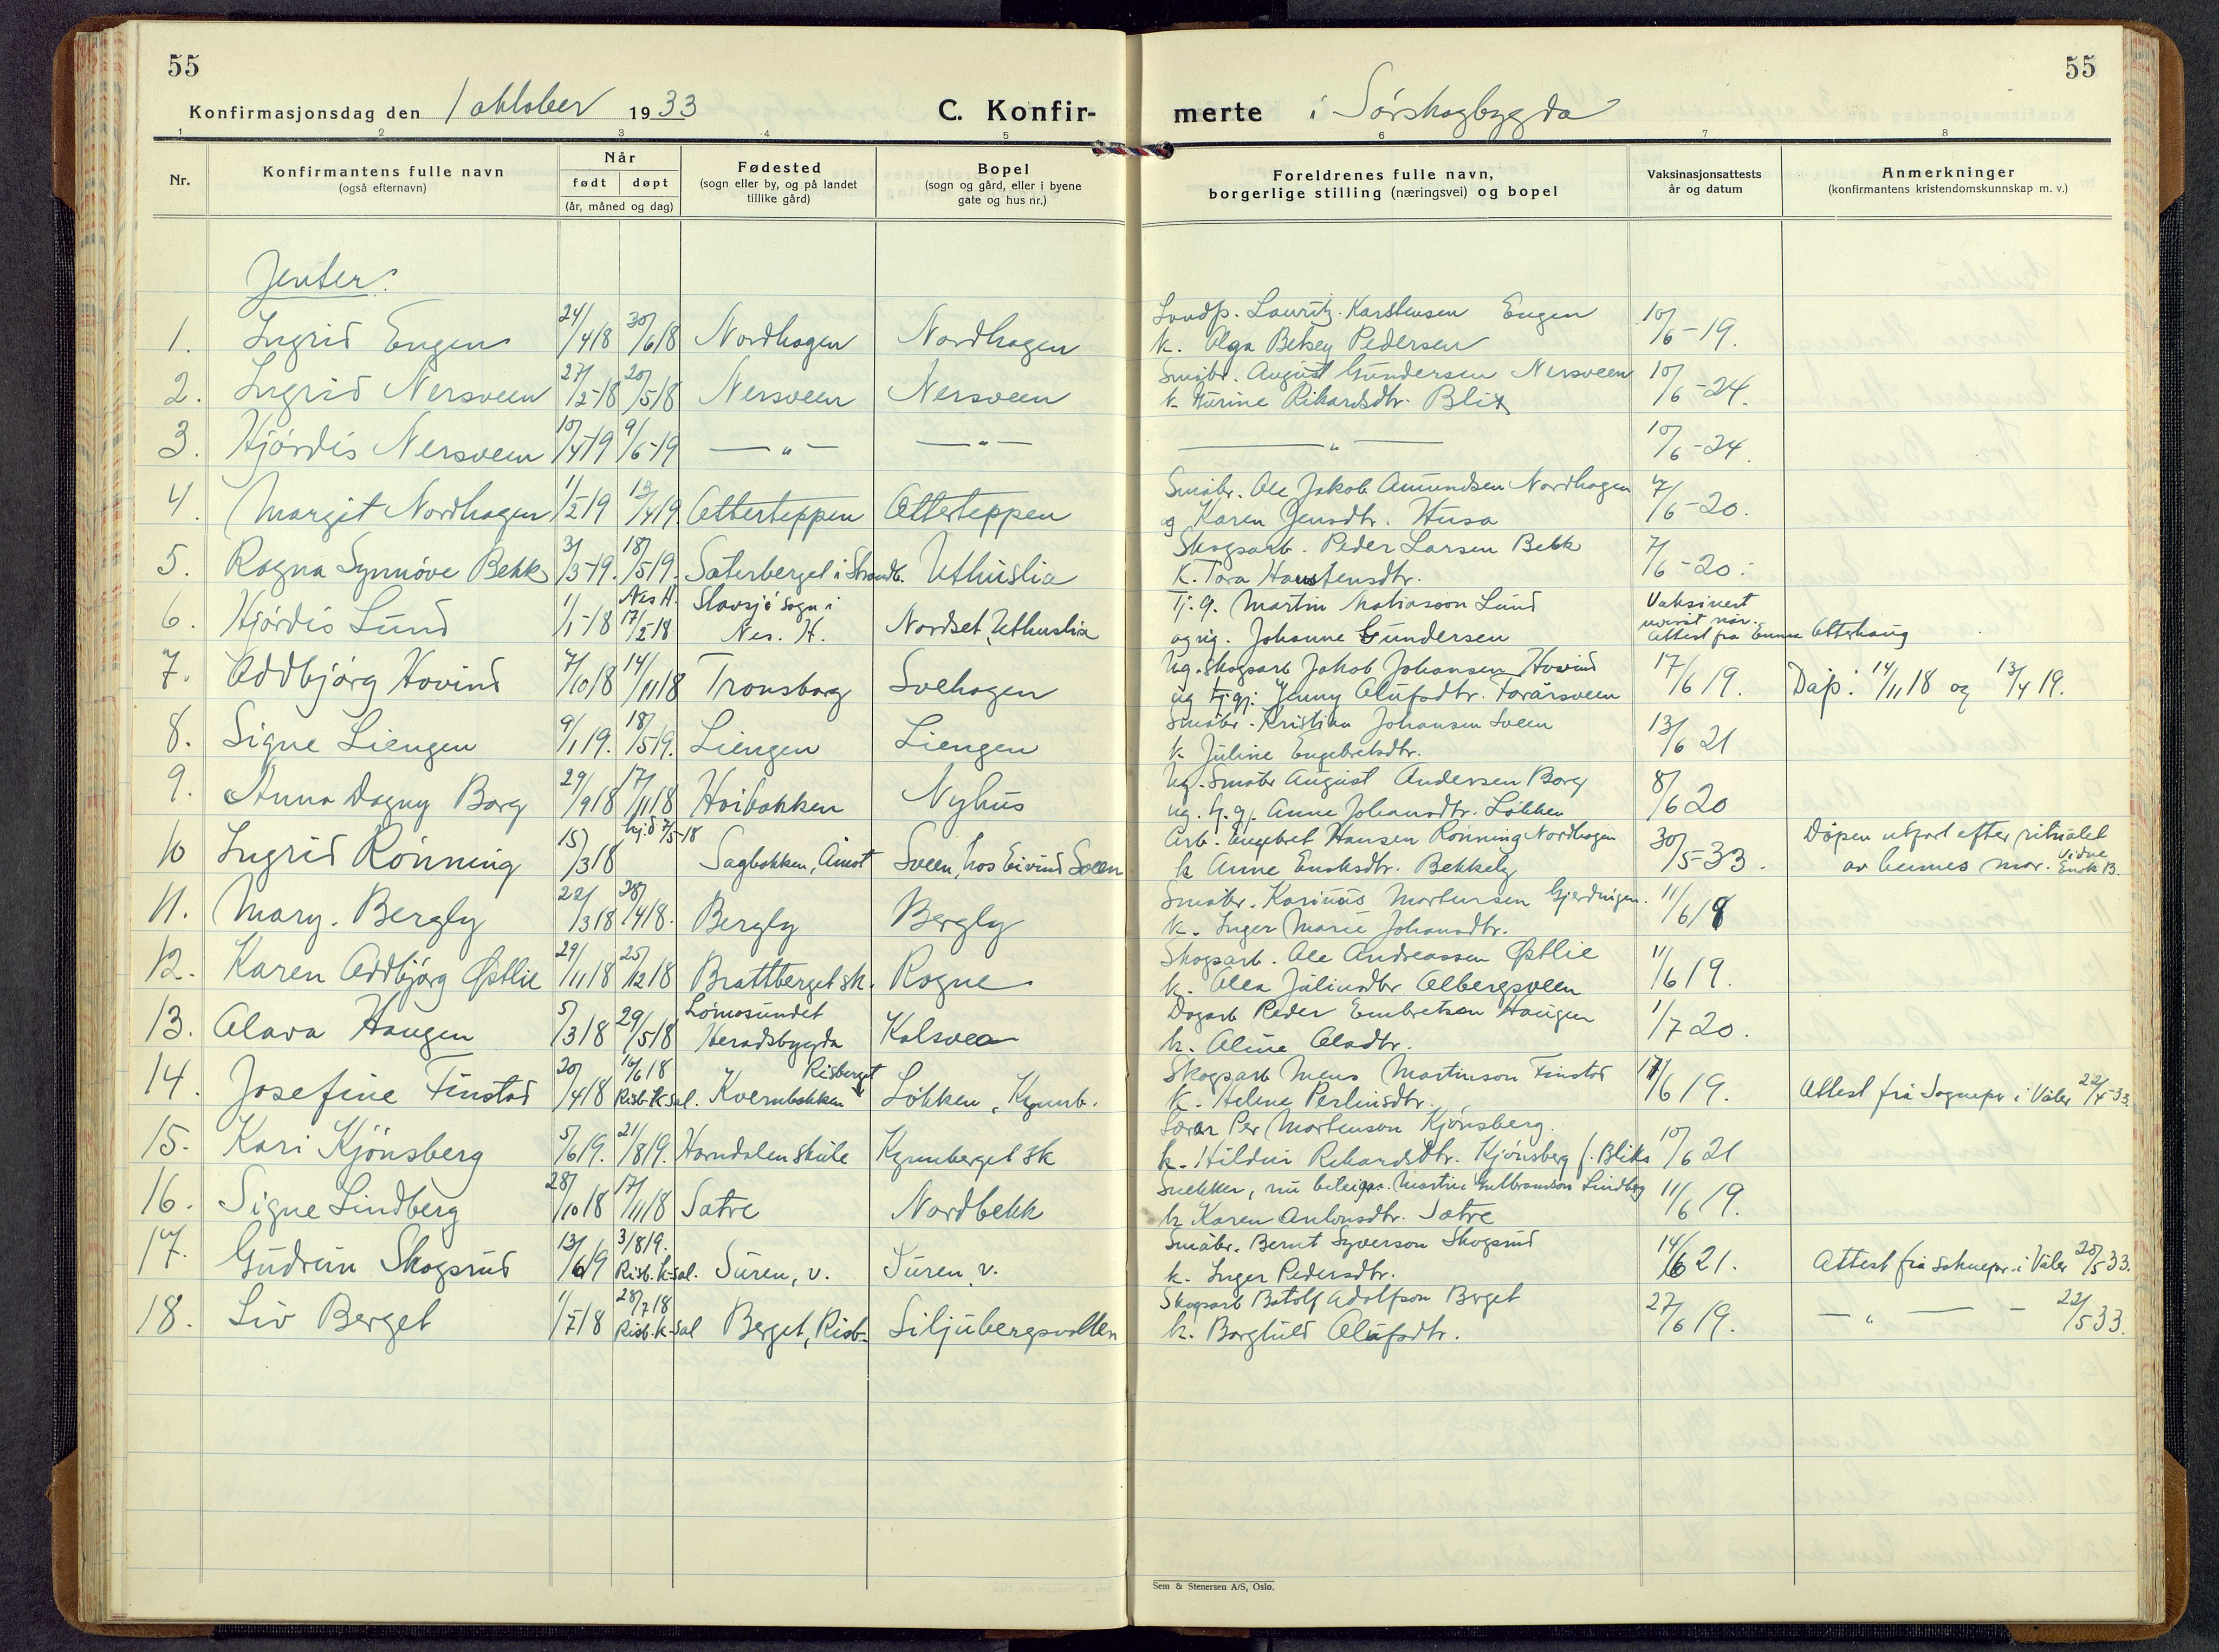 55
55
Konfirmasjonsdag den 1 oktober 1933
C. Konfir-
merte i Sørskogbygda
1 2 3 4 5 6 7 8
Nr.
Konfirmantens fulle navn
(også efternavn)
Når
født døpt
(år, måned og dag)
Fødested
(sogn eller by, og på landet
tillike gård)
Bopel
(sogn og gård, eller i byene
gate og hus nr.)
Foreldrenes fulle navn,
borgerlige stilling (næringsvei) og bopel
Vaksinasjonsattests
år og datum
Anmerkninger
(konfirmantens kristendomskunnskap m. v.)
Jenter:
1. Ingrid Engen 24/4 18 30/6 18 Nordhagen Nordhagen
Lauritz Karstensen Engen 10/6-19.
k. Olga Betsey Pedersen
2. Ingrid Nersveen 27/2-18 20/5 18 Nersveen Nersveen
Småbr. August Gundersen Nersveen 10/6-24.
k. Rikardsdtr. Blix
3. Hjördis Nersveen 10/4 19 9/6-19 — " — — " —
— " — 10/6-24.
4. Margit Nordhagen 1/2 19 13/4 19 Otterteppen Otterteppen
Småbr. Ole Jakob Amundsen Nordhagen 7/6-20.
og Karen Jensdtr. Husa
5. Ragna Synnöve Bekk 3/3-19. 18/5 19. Sæterberget i Strandb. Uthuslia
Skogsarb. Peder Larsen Bekk 7/6-20.
K. Tora Haustensdtr.
6. Hjördis Lund 1/1-18 Nes H. 17/2 18 Slavsjö sogn i
Nes. H. Nordset, Uthuslia
Tj.g. Martin Matiasson Lund Vaksinert
og ug. Johanne Gundersen
Attest fra Emma Otterhaug
7. Oddbjörg Hovind 7/10 18 14/11 18 Tronsborg Svehagen
Ug. Skogsarb Jakob Johansen Hovind 17/6 19. Döpt: 14/11 18 og 13/4 19.
ug tj.gj. Jenny Olufsdtr.
8. Signe Liengen 9/1 19. 18/5 19. Liengen Liengen
Småbr. Kristian Johansen Sveen 13/6 21
k. Juline Engebretsdtr.
9. Anna Dagny Borg 29/9 18 17/11 18 Haibakken Nyhus
Ug. Småbr August Andersen Borg 8/6 20
ug. tj.gj. Anne Johansdtr. Lökken
10 Ingrid Rönning 15/3 18 hj.d. 7/5-18 Sagbakken, Åmot Sveen, hos Eivind Sveen
Arb. Engebret Hansen Rönning Nordhagen 30/5-33. Döpen utfört efter ritualet
k Anne Enoksdtr. Bekkely av hennes mor. Vidne Enok B.
11. Mary. Bergly 22/3 18 28/4 18. Bergly Bergly
Småbr. Karinus Mortensen Gjerdingen. 11/6 18
k. Inger Marie Johansdtr.
12. Karen Oddbjörg Østlie 29/11 18 25/12 18 Brattberget sk. Rogne
Skogsarb. Ole Andreassen Østlie 11/6 19.
k. Olea Julinsdtr Olbergsveen
13. Olava Haugen 5/3 18 29/5 18 Lömosundet
Heradsbygda Kolsvea
Dagarb Peder Embretsen Haugen 1/7 20.
k. Oline Olsdtr.
14. Josefine Finstad 20/4 18 16/6 18 Risb. k-sal. Kvernbekken Risberget Lökken, Kynnb.
Skogsarb Mens Martinson Finstad 17/6 19. Attest frå Sognepr i Våler 22/4-33.
K. Helene Perlinsdtr.
15. Kari Kjönsberg 5/6 19. 21/8 19. Horndalen skule Kynnberget sk
Lærer Per Mortenson Kjönsberg. 10/6 21
k. Hildur Rikardsdtr. Kjönsberg f. Bliks
16. Signe Lindberg 28/10 18 17/11 18 Sætre Nordbekk
Snekker, nu Martin Gulbrandson Lindberg 11/6 19.
k Karen Antonsdtr. Sætre
17. Gudrun Skogsrud 13/6 19 3/8 19. Risb. k-sal. Suren, v. Suren, v.
Småbr. Bernt Syverson Skogsrud 14/6 21. Attest frå soknepr. i Våler 20/5 33.
k. Inger Pedersdtr.
18. Liv Berget 1/7 18 28/7 18 Risb. k-sal Berget, Risb. Siljubergsvollen
Skogsarb Botolf Adolfson Berget 27/6 19. — " — — 22/5 33.
k. Borghild Olufsdtr.
Sem & Stenersen A/S, Oslo.